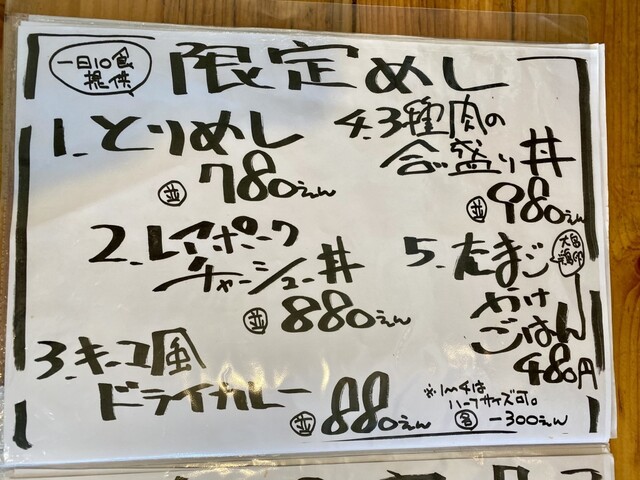 一日10食
提供
限定めし
1.とりめし
並 780えん
2.レアポーク
チャーシュー丼
並 880えん
3.キーマ風
ドライカレー
並 880えん
4.3種肉の
合い盛り丼
並 980えん
5.たまご
かけ
ごはん
480円
※1〜4は
ハーフサイズ可。
各 -300えん